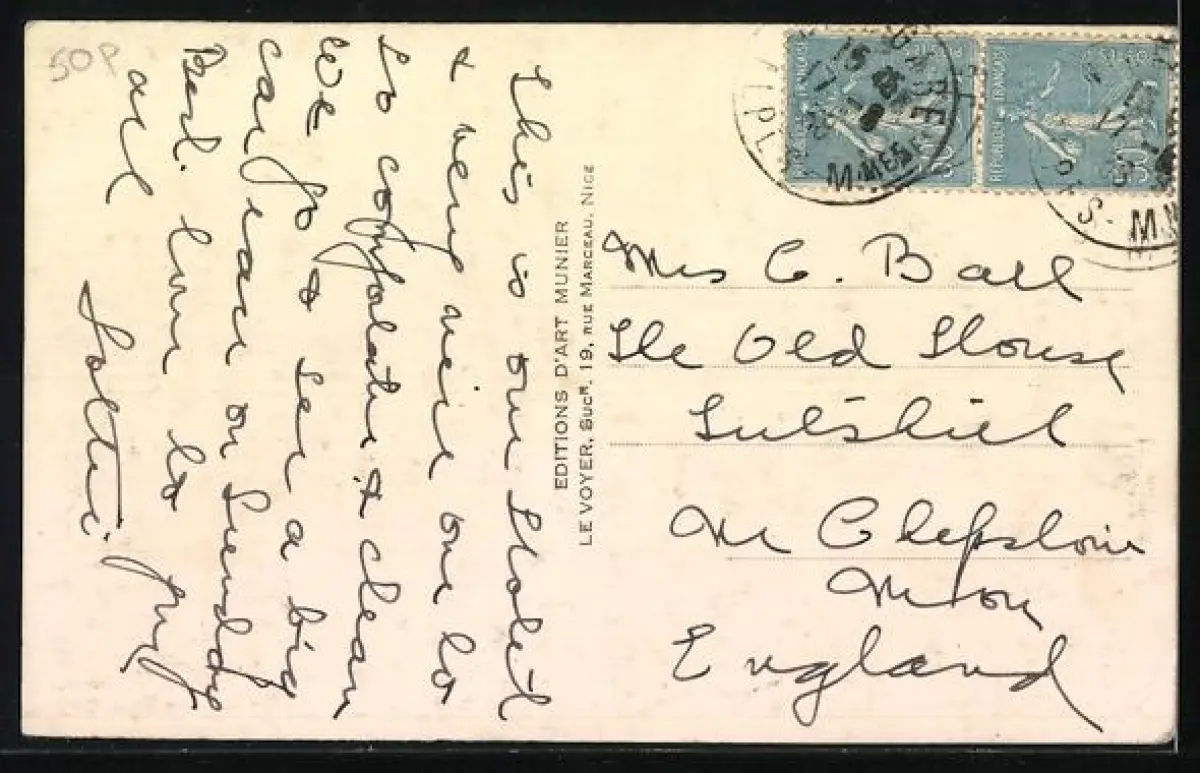 50P
This is our Hotel
& very nice one to
so comfortable & clean
We go to see a big
carnival on Sunday
Best love to
all
Lottie
EDITIONS D'ART MUNIER
LE VOYER, Sucr. 19, RUE MARCEAU, NICE
RÉPUBLIQUE FRANÇAISE
POSTES
50
RÉPUBLIQUE FRANÇAISE
POSTES
50
Mrs C. Ball
The Old House
Tutshill
Nr Chepstow
Mon
England